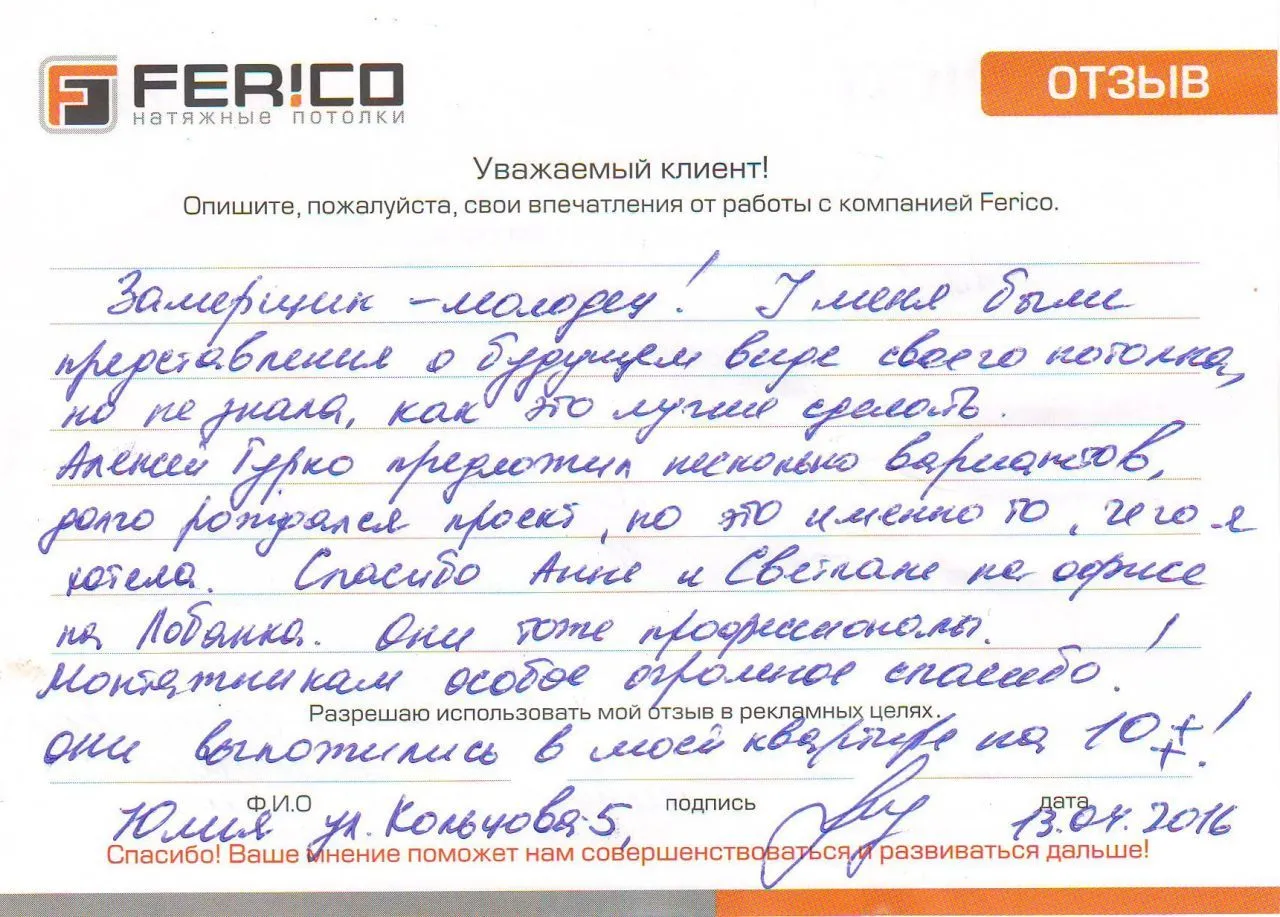 FER!CO
НАТЯЖНЫЕ ПОТОЛКИ
ОТЗЫВ
Уважаемый клиент!
Опишите, пожалуйста, свои впечатления от работы с компанией Ferico.
Замерщик - молодец! У меня были
представления о будущем виде своего потолка,
но не знала, как это лучше сделать.
Алексей Гурко предложил несколько вариантов,
долго рождался проект, но это именно то, чего я
хотела. Спасибо Анне и Светлане на офисе
на Лобанка. Они тоже профессионалы!
Монтажникам особое огромное спасибо!
Разрешаю использовать мой отзыв в рекламных целях.
Они выложились в моей квартире на 10++!
Ф.И.О подпись дата
Юлия ул. Кольцова 5, 13.04.2016
Спасибо! Ваше мнение поможет нам совершенствоваться и развиваться дальше!